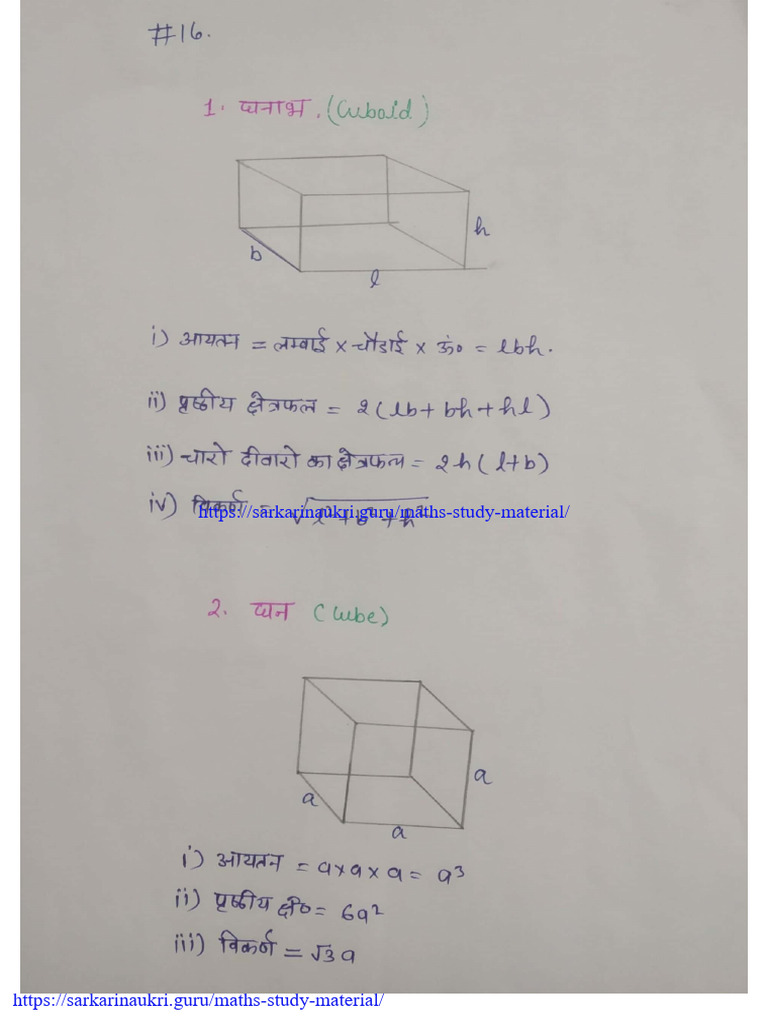 #16.
1. घनाभ. (Cuboid)
h
b
l
i) आयतन = लम्बाई × चौडाई × ऊं० = lbh.
ii) पृष्ठीय क्षेत्रफल = 2(lb+bh+hl)
iii) चारो दीवारो का क्षेत्रफल = 2h(l+b)
iv) विकर्ण = √l²+b²+h²
https://sarkarinaukri.guru/maths-study-material/
2. घन (Cube)
a
a
a
i) आयतन = a×a×a = a³
ii) पृष्ठीय क्षे० = 6a²
iii) विकर्ण = √3a
https://sarkarinaukri.guru/maths-study-material/